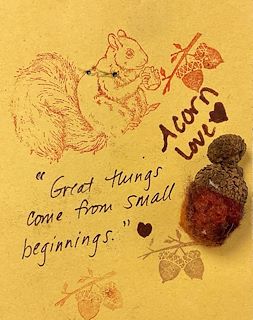 Acorn
Love
"Great things
come from small
beginnings."